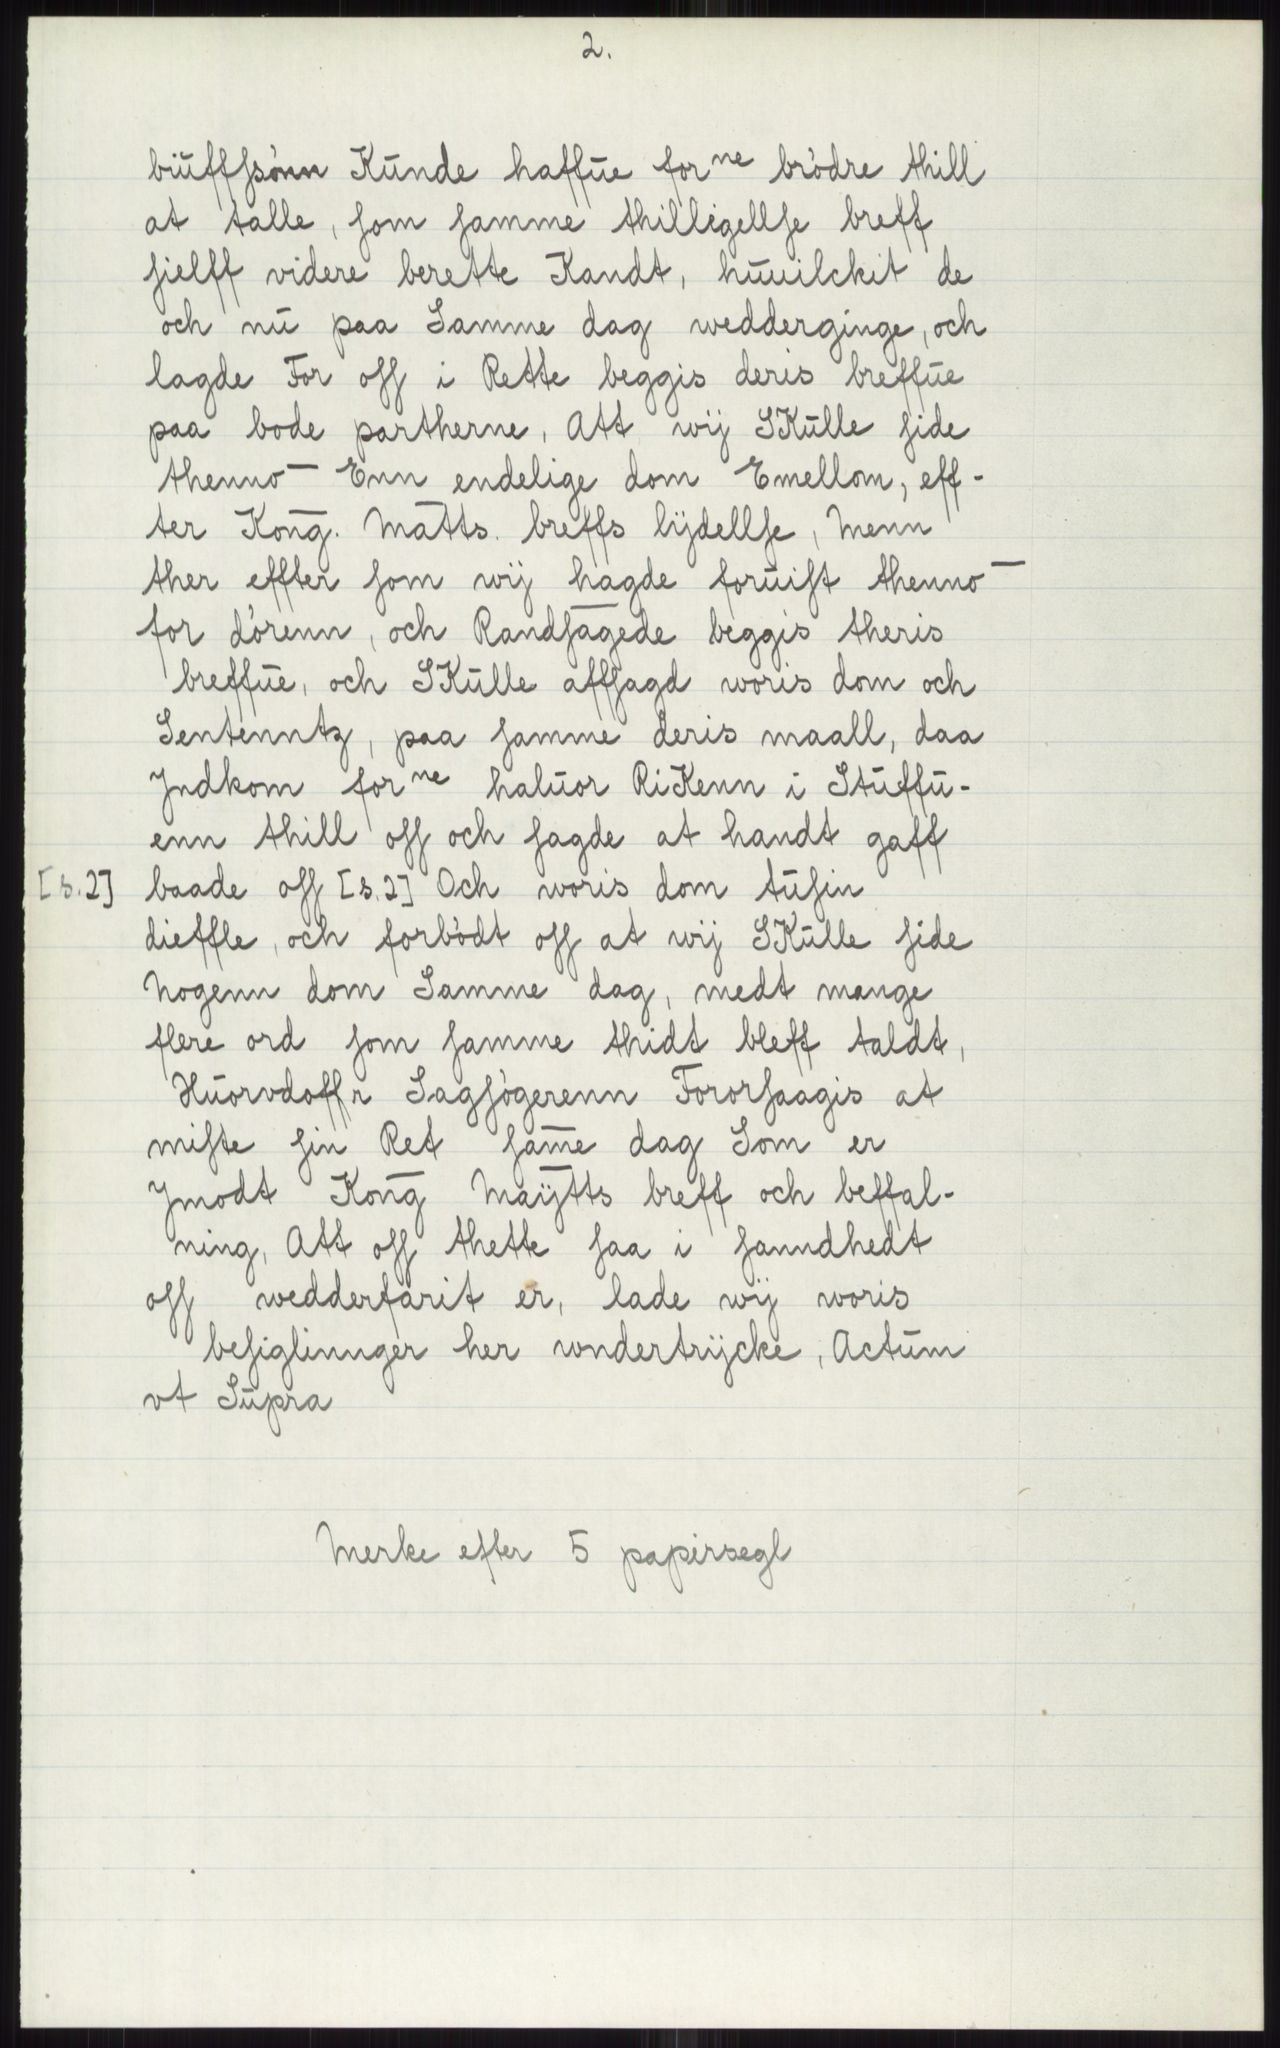 2.
biūffſsònn Kūnde haffūe for ne bròdre thill
at talle, ſom ſamme thilligellſe breff
ſielff videre berette Kandt, hūūilckit de
och nū paa Samme dag wedderginge, och
lagde For oſſ i Rette beggis deris breffūe
paa bode partherne, Att wij SKūlle ſide
thennō Enn endelige dom Emellom, eff-
ter Kong̅. Mātts. breffs lÿdellſe, Menn
ther effter ſom wij hagde forūiſt thennō
for dòrenn, och Randſāgede beggis theris
breffūe, och SKūlle affſagd woris dom och
Sentenntz, paa ſamme deris maall, daa
Jndkom for ne halūor RiKenn i Stūffū-
enn thill oſſ och ſagde at handt gaff
[s.2] baade oſſ [s.2] Och woris dom tūſin
dieffle, och forbòdt oſſ at wij SKūlle ſide
Nogenn dom Samme dag, medt mange
flere ord ſom ſamme thidt bleff taldt,
Hūorvdoffr Sagſògerenn Fororſaagis at
miſte ſin Ret ſam̅e dag Som er
Jmodt Kong̅ Maÿtts breff och beffal-
ning, Att oſſ thette ſaa i ſanndhedt
oſſ wedderfarit er, lade wij woris
beſiglinnger her wndertrÿcke, Actūm
vt Sūpra
Merke efter 5 papirsegl